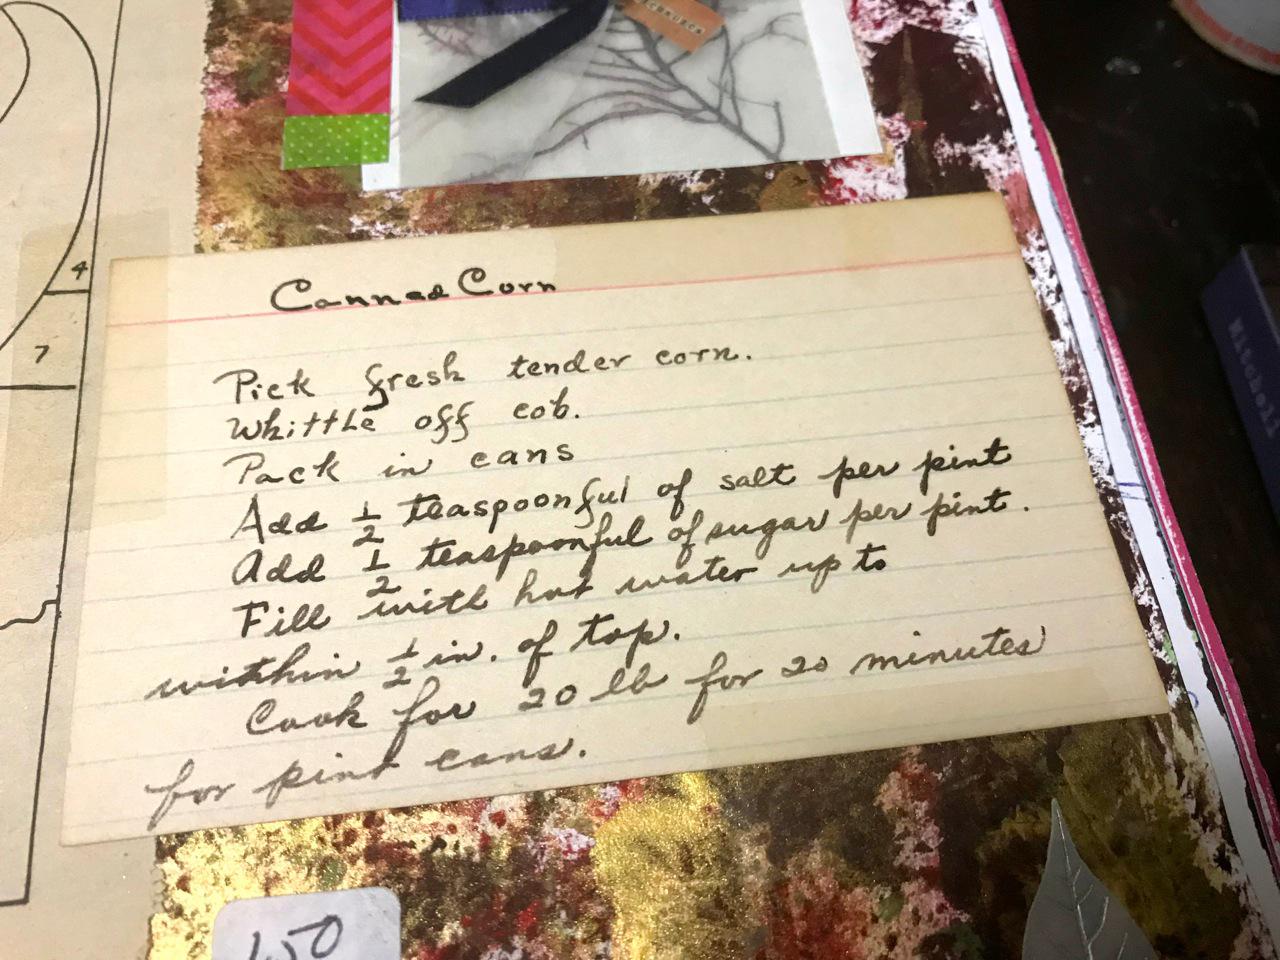 4
7
Canned Corn
Pick fresh tender corn.
Whittle off cob.
Pack in cans
Add 1/2 teaspoonful of salt per pint
Add 1/2 teaspoonful of sugar per pint.
Fill with hot water up to
within 1/2 in. of top.
Cook for 20 lb for 20 minutes
for pint cans.
1.50